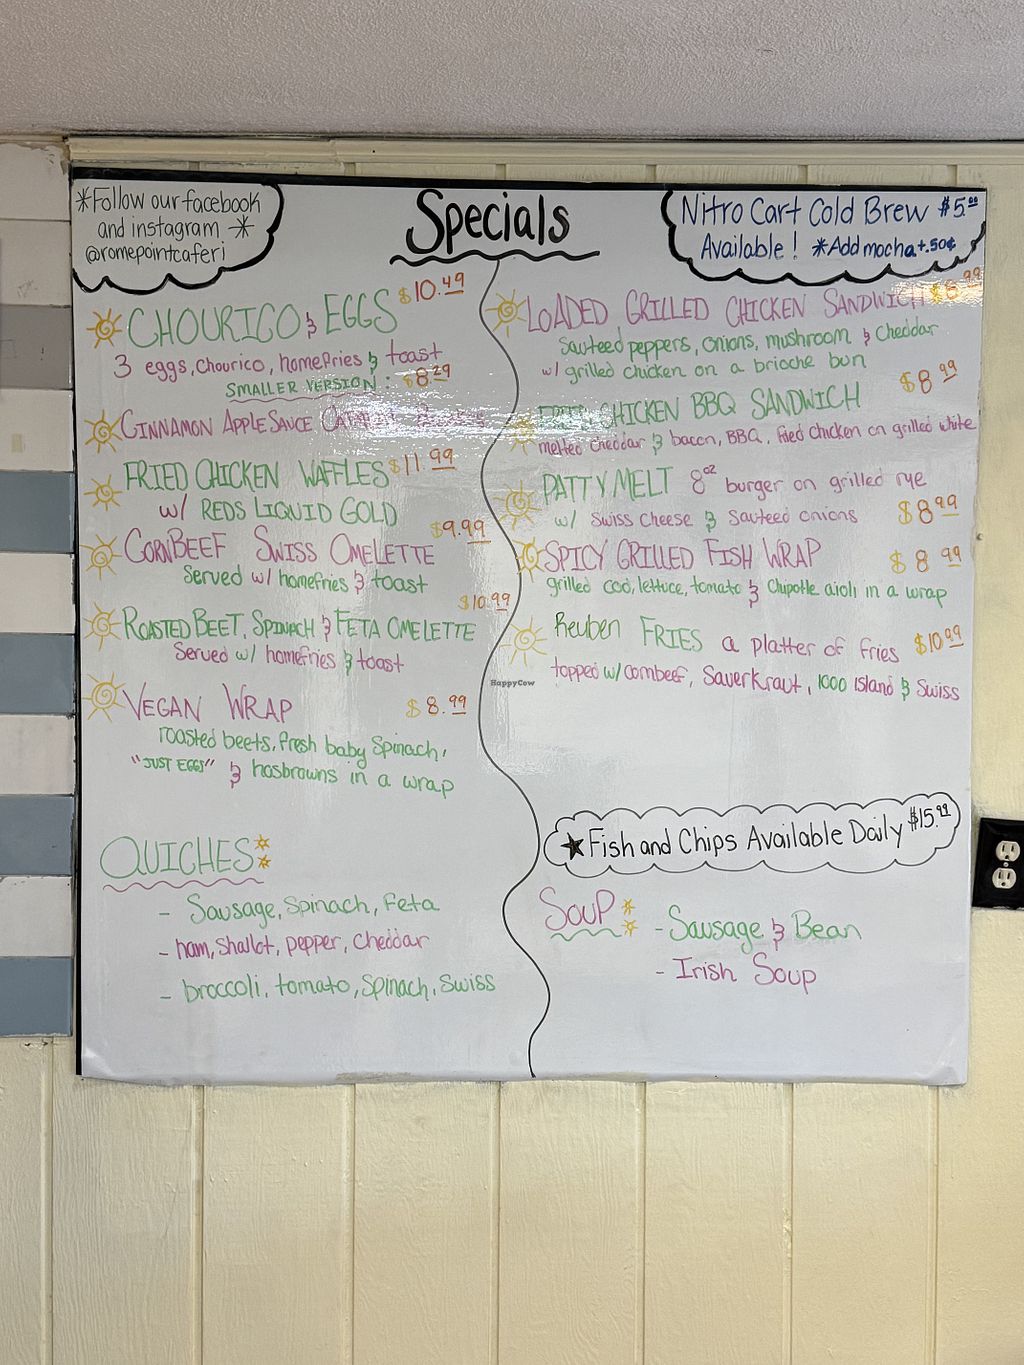 *Follow our facebook
and instagram *
@romepointcaferi
Specials
Nitro Cart Cold Brew $5.00
Available! *Add mocha +.50¢
CHOURICO & EGGS $10.49
3 eggs, chourico, homefries & toast
SMALLER VERSION: $8.29
CINNAMON APPLE SAUCE
FRIED CHICKEN WAFFLES $11.99
w/ REDS LIQUID GOLD
CORNBEEF SWISS OMELETTE $9.99
Served w/ homefries & toast
ROASTED BEET, SPINACH & FETA OMELETTE $10.99
Served w/ homefries & toast
VEGAN WRAP $8.99
roasted beets, fresh baby spinach,
"JUST EGGS" & hasbrowns in a wrap
QUICHES
- Sausage, Spinach, Feta
- ham, shallot, pepper, cheddar
- broccoli, tomato, spinach, swiss
LOADED GRILLED CHICKEN SANDWICH
Sauteed peppers, onions, mushroom & Cheddar
w/ grilled chicken on a brioche bun
FRIED CHICKEN BBQ SANDWICH $8.99
melted cheddar & bacon, BBQ, fried chicken on grilled white
PATTY MELT 8oz burger on grilled rye
w/ Swiss cheese & Sauteed onions $8.99
SPICY GRILLED FISH WRAP $8.99
grilled cod, lettuce, tomato & Chipotle aioli in a wrap
Reuben FRIES a platter of fries $10.99
topped w/ cornbeef, Sauerkraut, 1000 Island & Swiss
HappyCow
★Fish and Chips Available Daily $15.99
SOUP
- Sausage & Bean
- Irish Soup